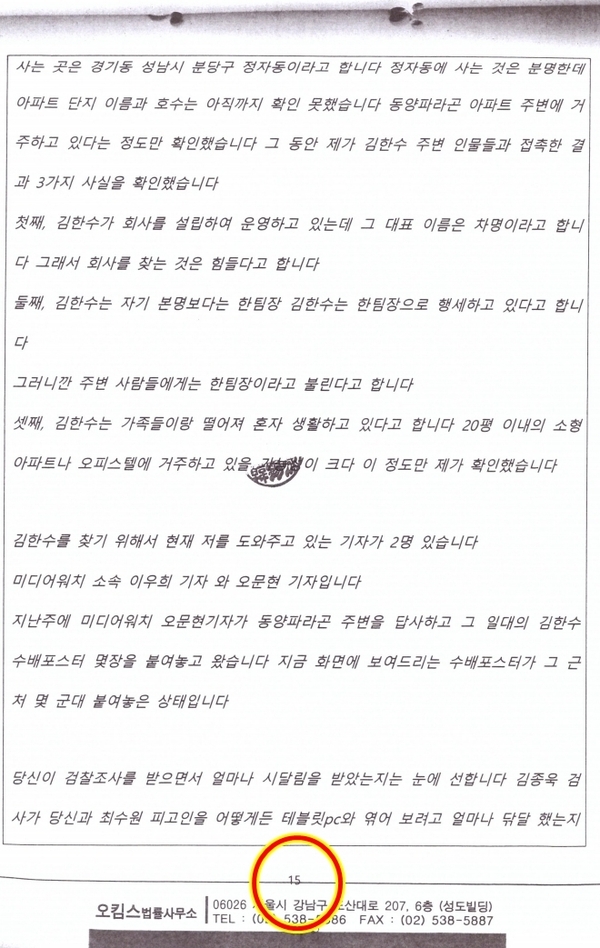 사는 곳은 경기동 성남시 분당구 정자동이라고 합니다 정자동에 사는 것은 분명한데
아파트 단지 이름과 호수는 아직까지 확인 못했습니다 동양파라곤 아파트 주변에 거
주하고 있다는 정도만 확인했습니다 그 동안 제가 김한수 주변 인물들과 접촉한 결
과 3가지 사실을 확인했습니다
첫째, 김한수가 회사를 설립하여 운영하고 있는데 그 대표 이름은 차명이라고 합니
다 그래서 회사를 찾는 것은 힘들다고 합니다
둘째, 김한수는 자기 본명보다는 한팀장 김한수는 한팀장으로 행세하고 있다고 합니
다
그러니깐 주변 사람들에게는 한팀장이라고 불린다고 합니다
셋째, 김한수는 가족들이랑 떨어져 혼자 생활하고 있다고 합니다 20평 이내의 소형
아파트나 오피스텔에 거주하고 있을 이 크다 이 정도만 제가 확인했습니다
김한수를 찾기 위해서 현재 저를 도와주고 있는 기자가 2명 있습니다
미디어워치 소속 이우희 기자 와 오문현 기자입니다
지난주에 미디어워치 오문현기자가 동양파라곤 주변을 답사하고 그 일대의 김한수
수배포스터 몇장을 붙여놓고 왔습니다 지금 화면에 보여드리는 수배포스터가 그 근
처 몇 군대 붙여놓은 상태입니다
당신이 검찰조사를 받으면서 얼마나 시달림을 받았는지는 눈에 선합니다 김종욱 검
사가 당신과 최수원 피고인을 어떻게든 테블릿pc와 엮어 보려고 얼마나 닦달 했는지
15
오킴스법률사무소
06026 서울시 강남구 도산대로 207, 6층 (성도빌딩)
TEL : (02) 538-5886 FAX : (02) 538-5887